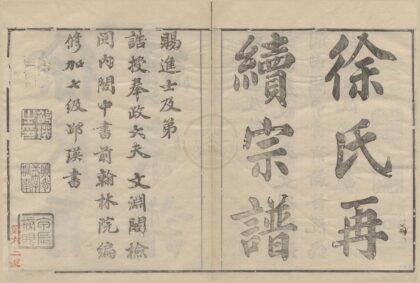 徐氏再
續宗譜
賜進士及第
誥授奉政大夫文淵閣檢
閱內閣中書前翰林院編
修加七級鄒瑛書